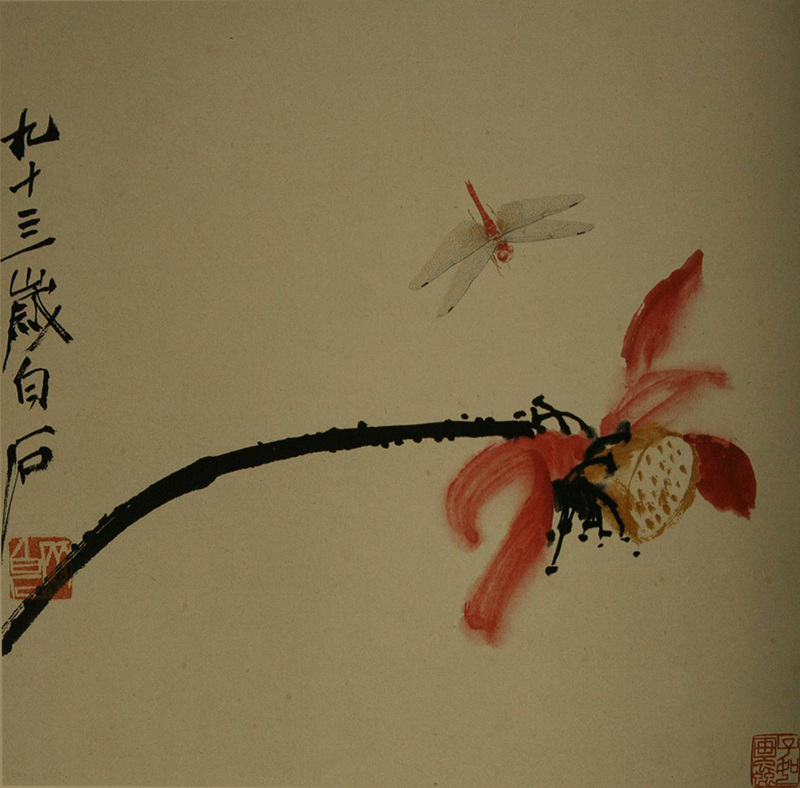 九十三歲白石
子如畫蟲